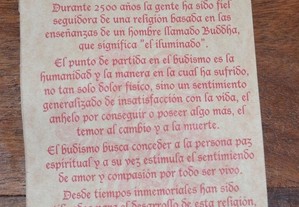 Durante 2500 años la gente ha sido fiel
seguidora de una religión basada en las
enseñanzas de un hombre llamado Buddha,
que significa "el iluminado".
El punto de partida en el budismo es la
humanidad y la manera en la cual ha sufrido,
no tan solo dolor físico, sino un sentimiento
generalizado de insatisfacción con la vida, el
anhelo por conseguir o poseer algo mas, el
temor al cambio y a la muerte.
El budismo busca conceder a la persona paz
espiritual y a su vez estimula el sentimiento
de amor y compasión por todo ser vivo.
Desde tiempos inmemoriales han sido
para el desarrollo de esta religión,